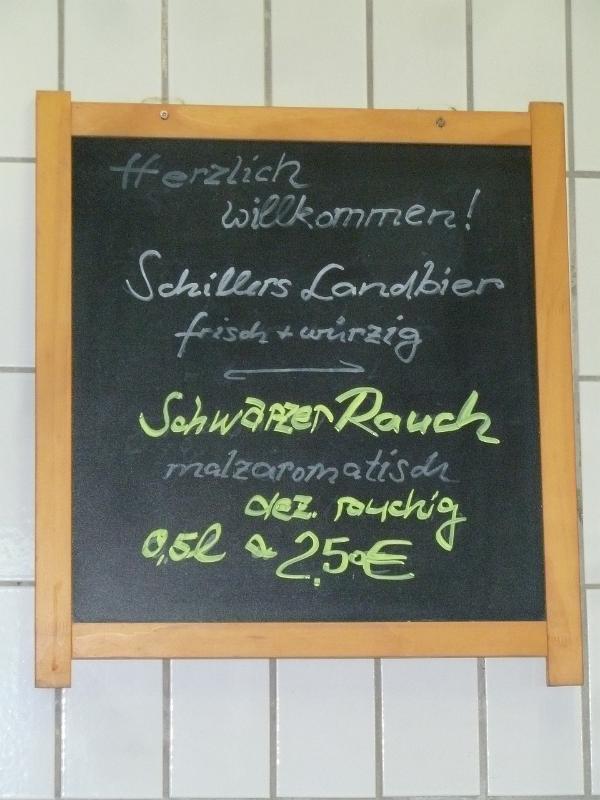 Herzlich
willkommen!
Schillers Landbier
frisch + würzig
Schwarzer Rauch
malzaromatisch
dez. rauchig
0,5l a 2,50€